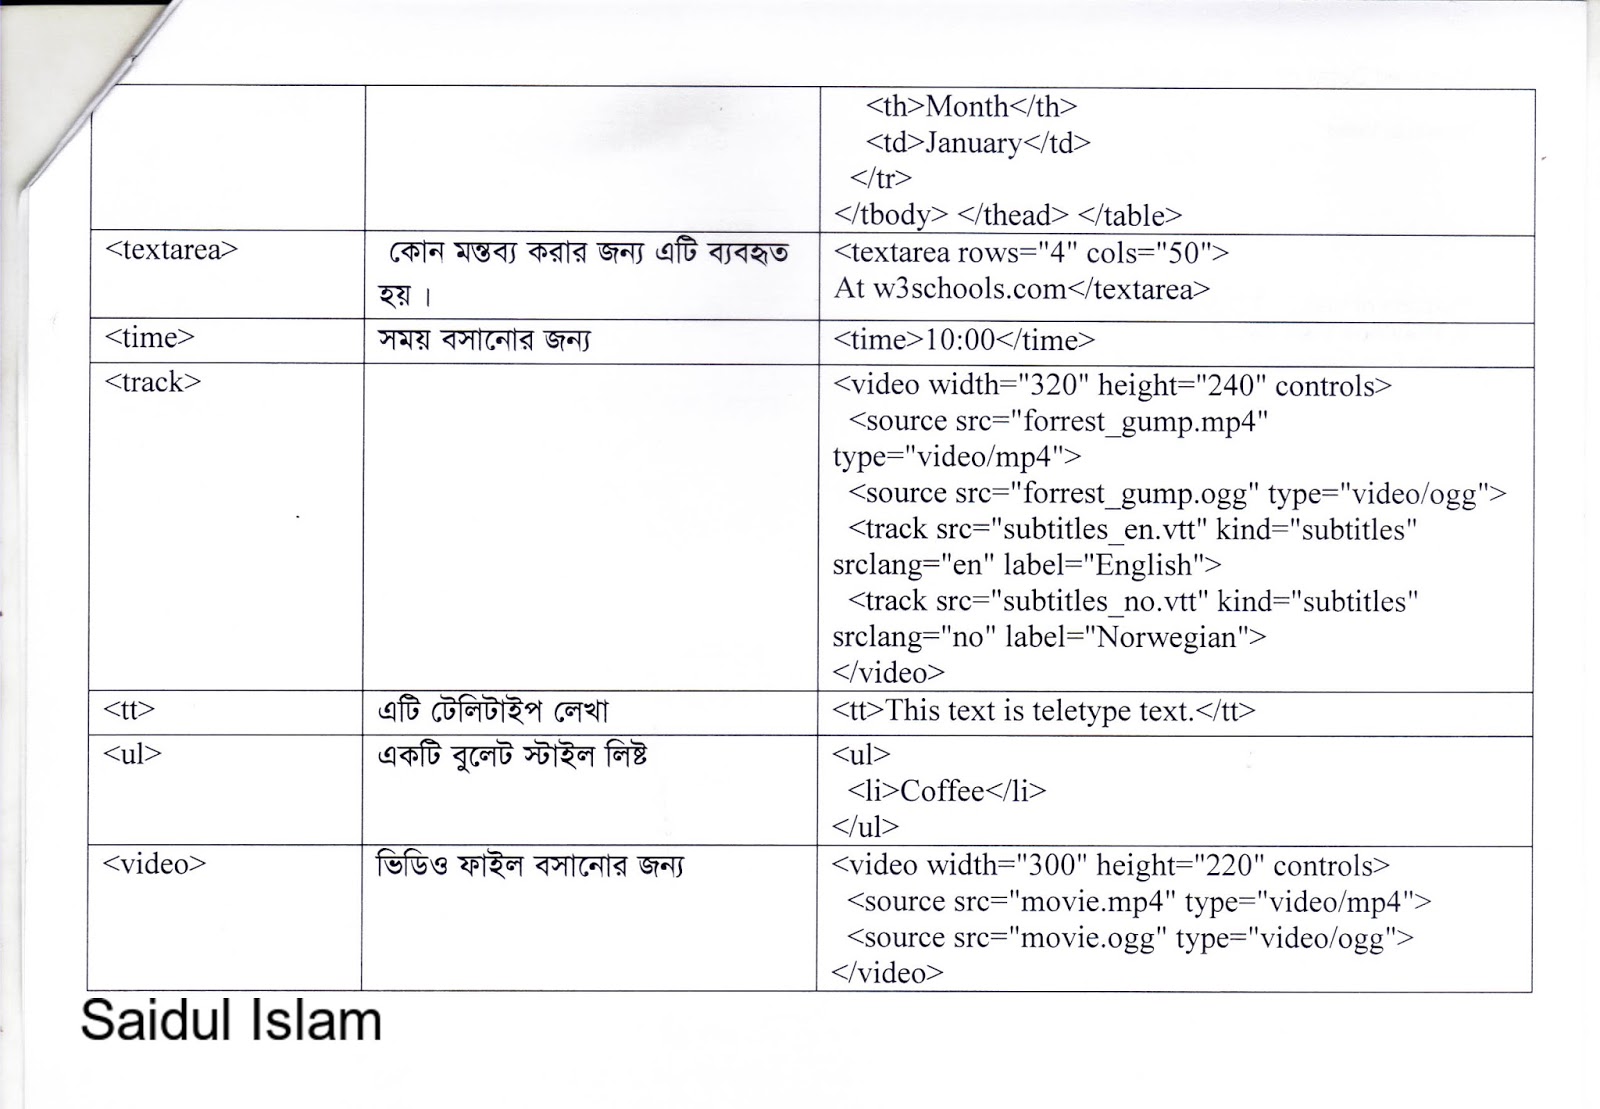 <th>Month</th>
<td>January</td>
</tr>
</tbody> </thead> </table>
<textarea>
কোন মন্তব্য করার জন্য এটি ব্যবহৃত
হয় ।
<textarea rows="4" cols="50">
At w3schools.com</textarea>
<time>
সময় বসানোর জন্য
<time>10:00</time>
<track>
<video width="320" height="240" controls>
<source src="forrest_gump.mp4"
type="video/mp4">
<source src="forrest_gump.ogg" type="video/ogg">
<track src="subtitles_en.vtt" kind="subtitles"
srclang="en" label="English">
<track src="subtitles_no.vtt" kind="subtitles"
srclang="no" label="Norwegian">
</video>
<tt>
এটি টেলিটাইপ লেখা
<tt>This text is teletype text.</tt>
<ul>
একটি বুলেট স্টাইল লিষ্ট
<ul>
<li>Coffee</li>
</ul>
<video>
ভিডিও ফাইল বসানোর জন্য
<video width="300" height="220" controls>
<source src="movie.mp4" type="video/mp4">
<source src="movie.ogg" type="video/ogg">
</video>
Saidul Islam